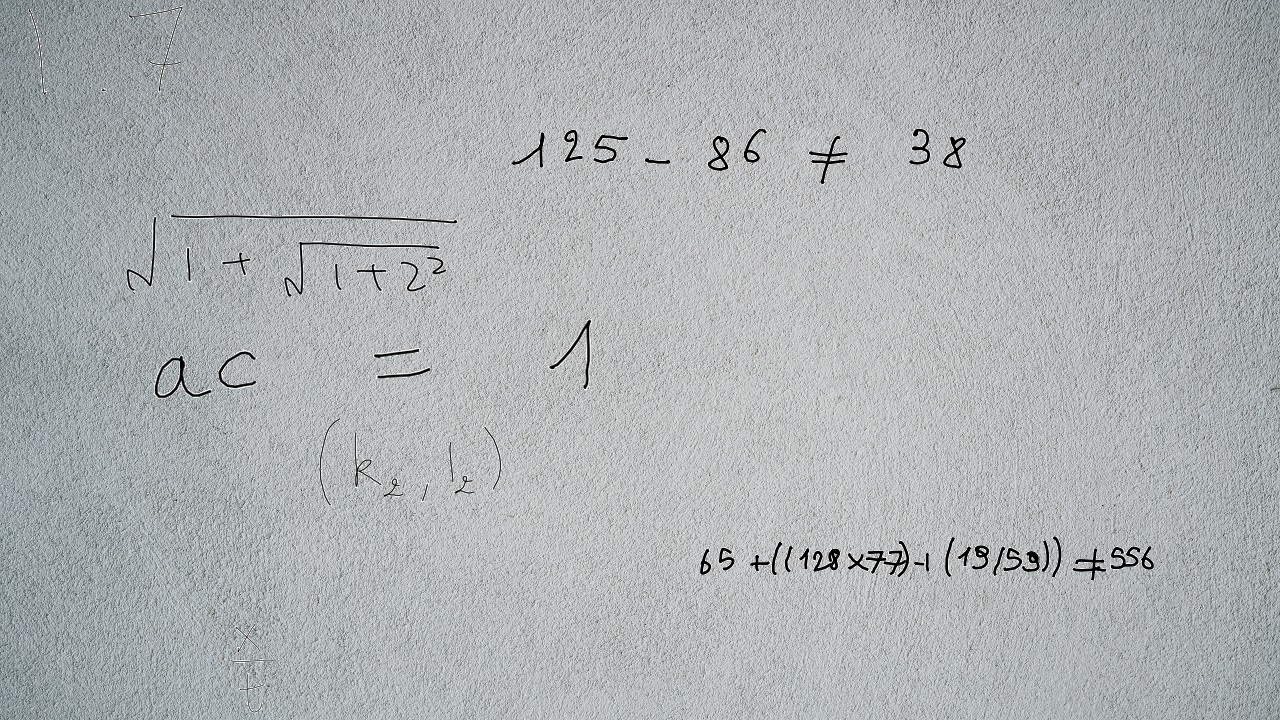 1.7
125 - 86 ≠ 38
√(1 + √(1+2²))
ac = 1
(k₂, l₂)
65 +((128×77)+(19/59)) ≠ 556
x/t